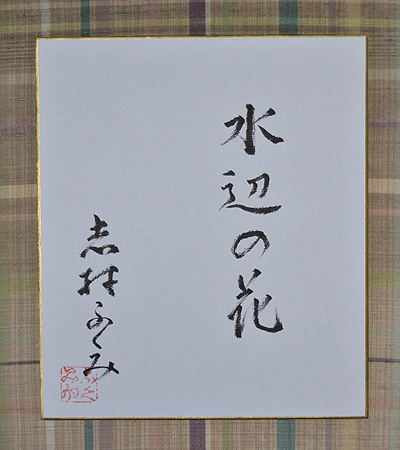 水辺の花
志村ふくみ